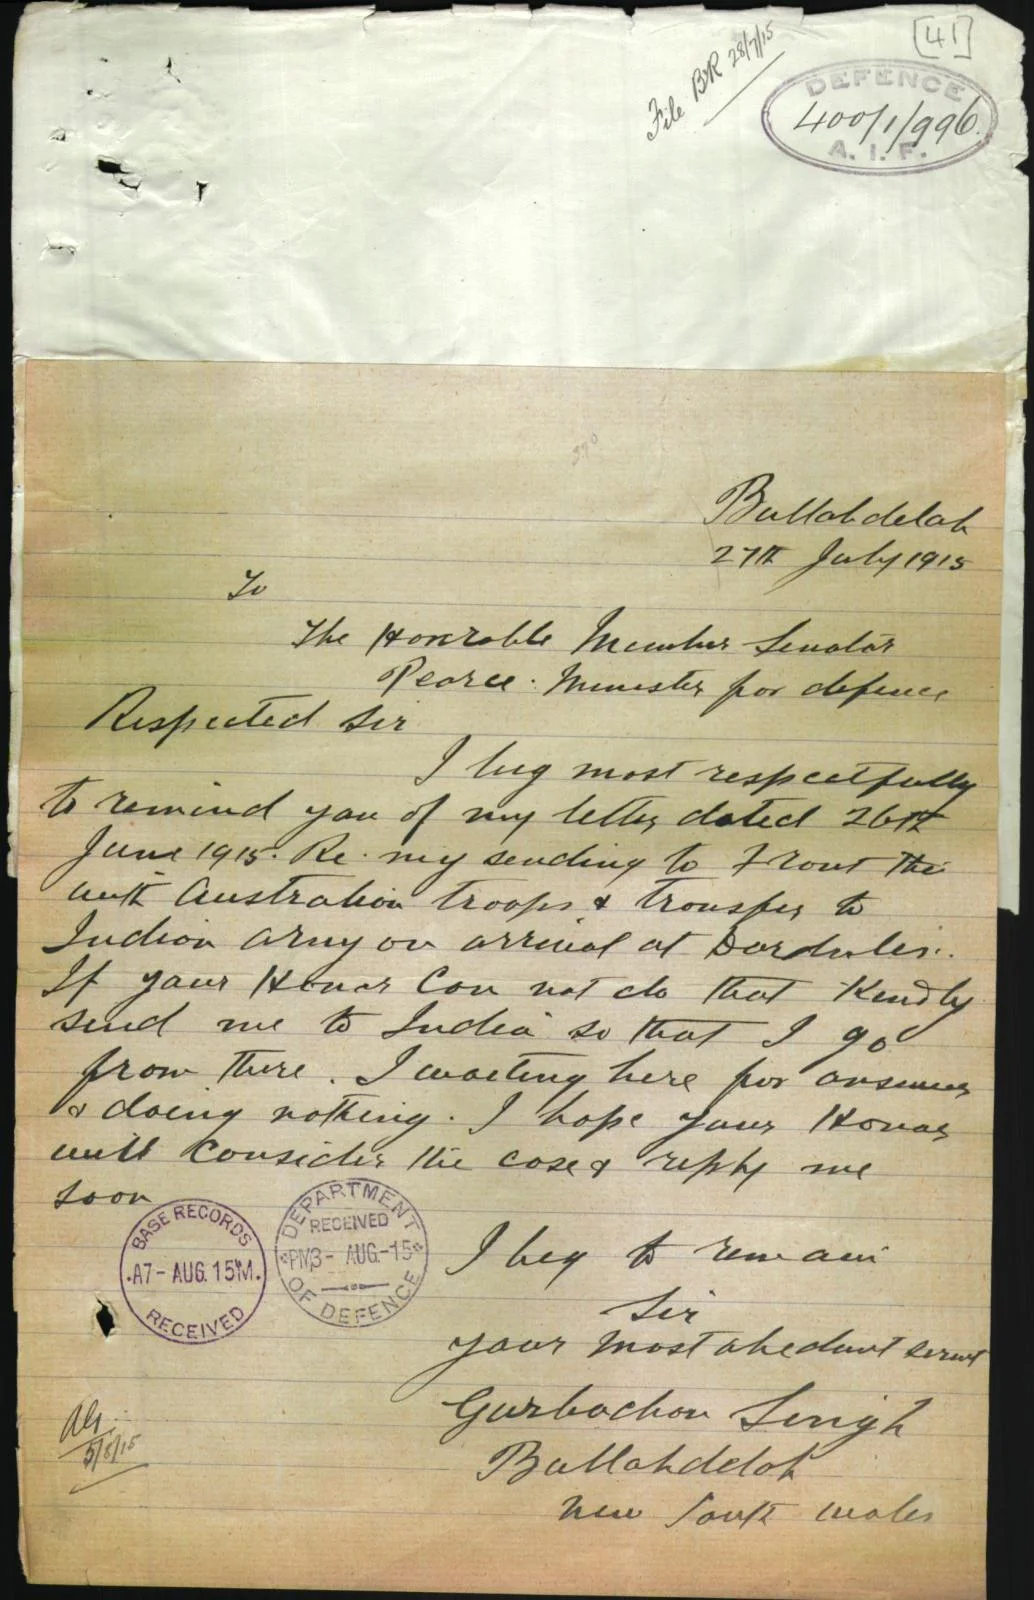 [41]
File B&R 28/7/15
DEFENCE
400/1/996.
A. I. F.
Bullahdelah
27th July 1915
To
The Honorable Member Senator
Pearce. Minister for defence
Respected Sir
I beg most respectfully
to remind you of my letter dated 26th
June 1915. Re. my sending to Front the
with Australian troops & transfer to
Indian army on arrival at
If your Honor Can not do that Kindly
send me to India so that I go
from there. I waiting here for answer
& doing nothing. I hope your Honor
will Consider the case & reply me
soon
BASE RECORDS
A7 - AUG. 15 M.
RECEIVED
DEPARTMENT
RECEIVED
PM 3 - AUG - 15
OF DEFENCE
I beg to remain
Sir
your most obedunt servnt
Gurbachan Singh
Bullahdelah
New South Wales
5/8/15